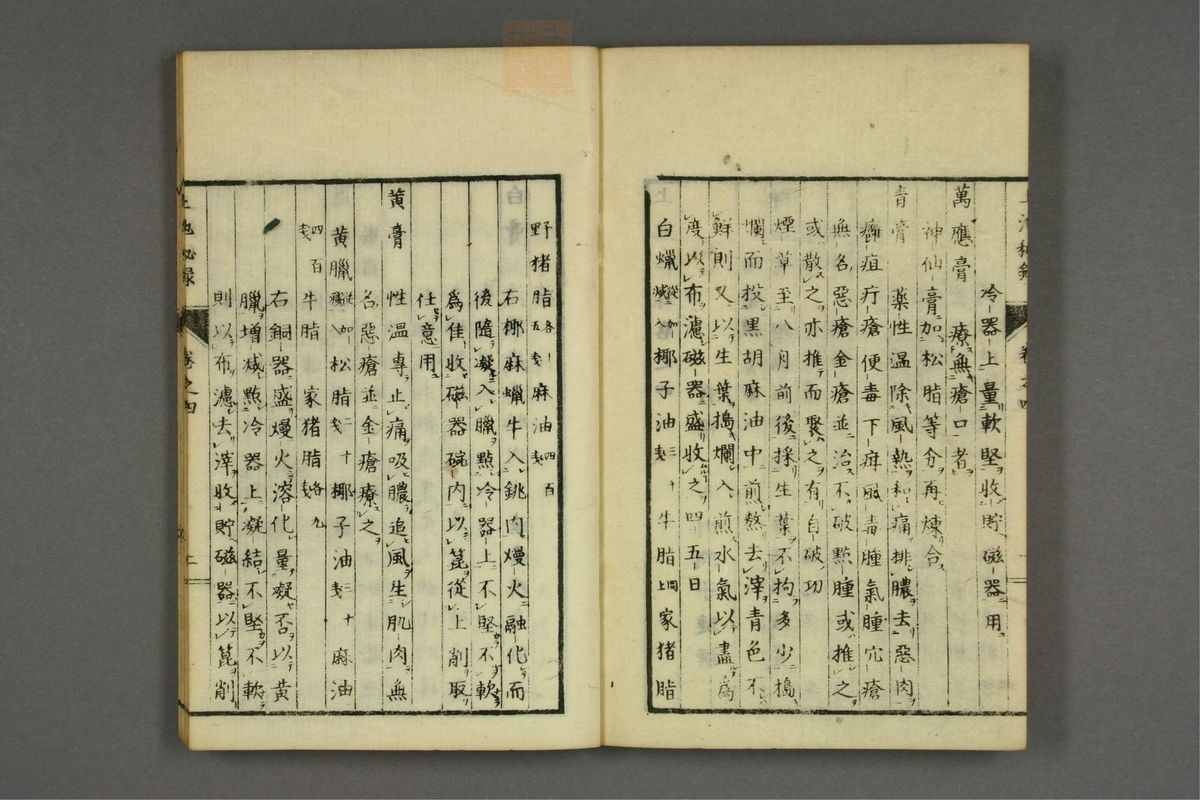 冷器上量軟堅收貯磁器用
萬應膏 療無瘡口者
神仙膏加松脂等分再煉合
青膏 藥性温除風熱和痛排膿去惡肉
癰疽疔瘡便毒下疳風毒腫氣腫穴瘡
無名惡瘡金瘡並治不破點腫或推之
或散之亦推而聚之有自破功
煙草至八月前後採生葉不拘多少搗
爛而投黑胡麻油中煎熬去滓青色不
鮮則又以生葉搗爛入煎水氣以盡為
度以布濾磁器盛收之四五日
白蠟從加減入椰子油三十戔牛脂同上家猪脂
野猪脂各五戔麻油四百戔
右椰麻蠟牛入銚肉熳火融化而
後隨凝入臘點冷器上不堅不軟
為佳收磁器碗内以篦從上削取
任意用
黄膏
性温專止痛吸膿追風生肌肉無
名惡瘡並金瘡療之
黄臘從加減入松脂二十戔椰子油三十戔麻油
四百戔牛脂 家猪脂各九戔
右銅器盛熳火溶化量凝否以黄
臘增减點冷器上凝結不堅不軟
則以布濾去滓收貯磁器以篦削
卷之四